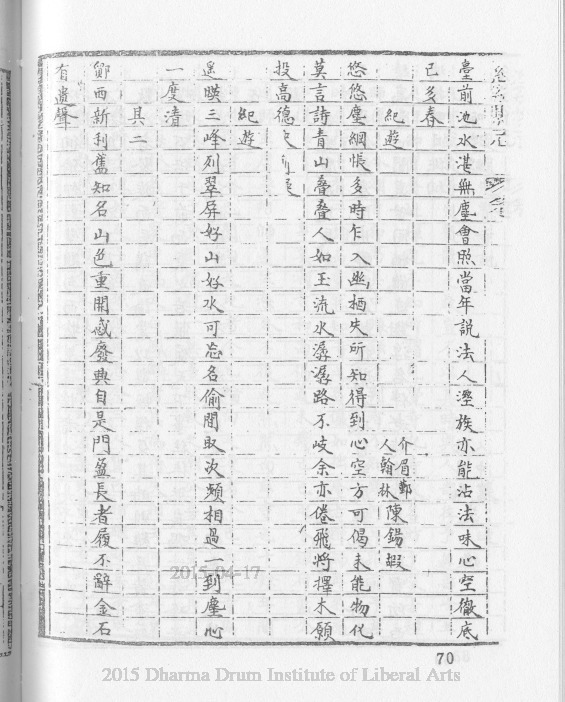 臺前池水湛無塵會照當年說法人溼族亦能沾法味心空徹底
已多春
紀遊
介眉鄞人翰林陳錫嘏
悠悠塵網悵多時乍入幽栖失所知得到心空方可偈未能物化
莫言詩青山叠叠人如玉流水潺潺路不岐余亦倦飛將擇木願
投高德
紀遊
遙暎三峰列翠屏好山好水可忘名偷閒取次頻相過一到塵心
一度清
其二
鄮西新利舊知名山色重開感廢興自是門盈長者履不辭金石
有遺聲
70
2015-04-17
2015 Dharma Drum Institute of Liberal Arts